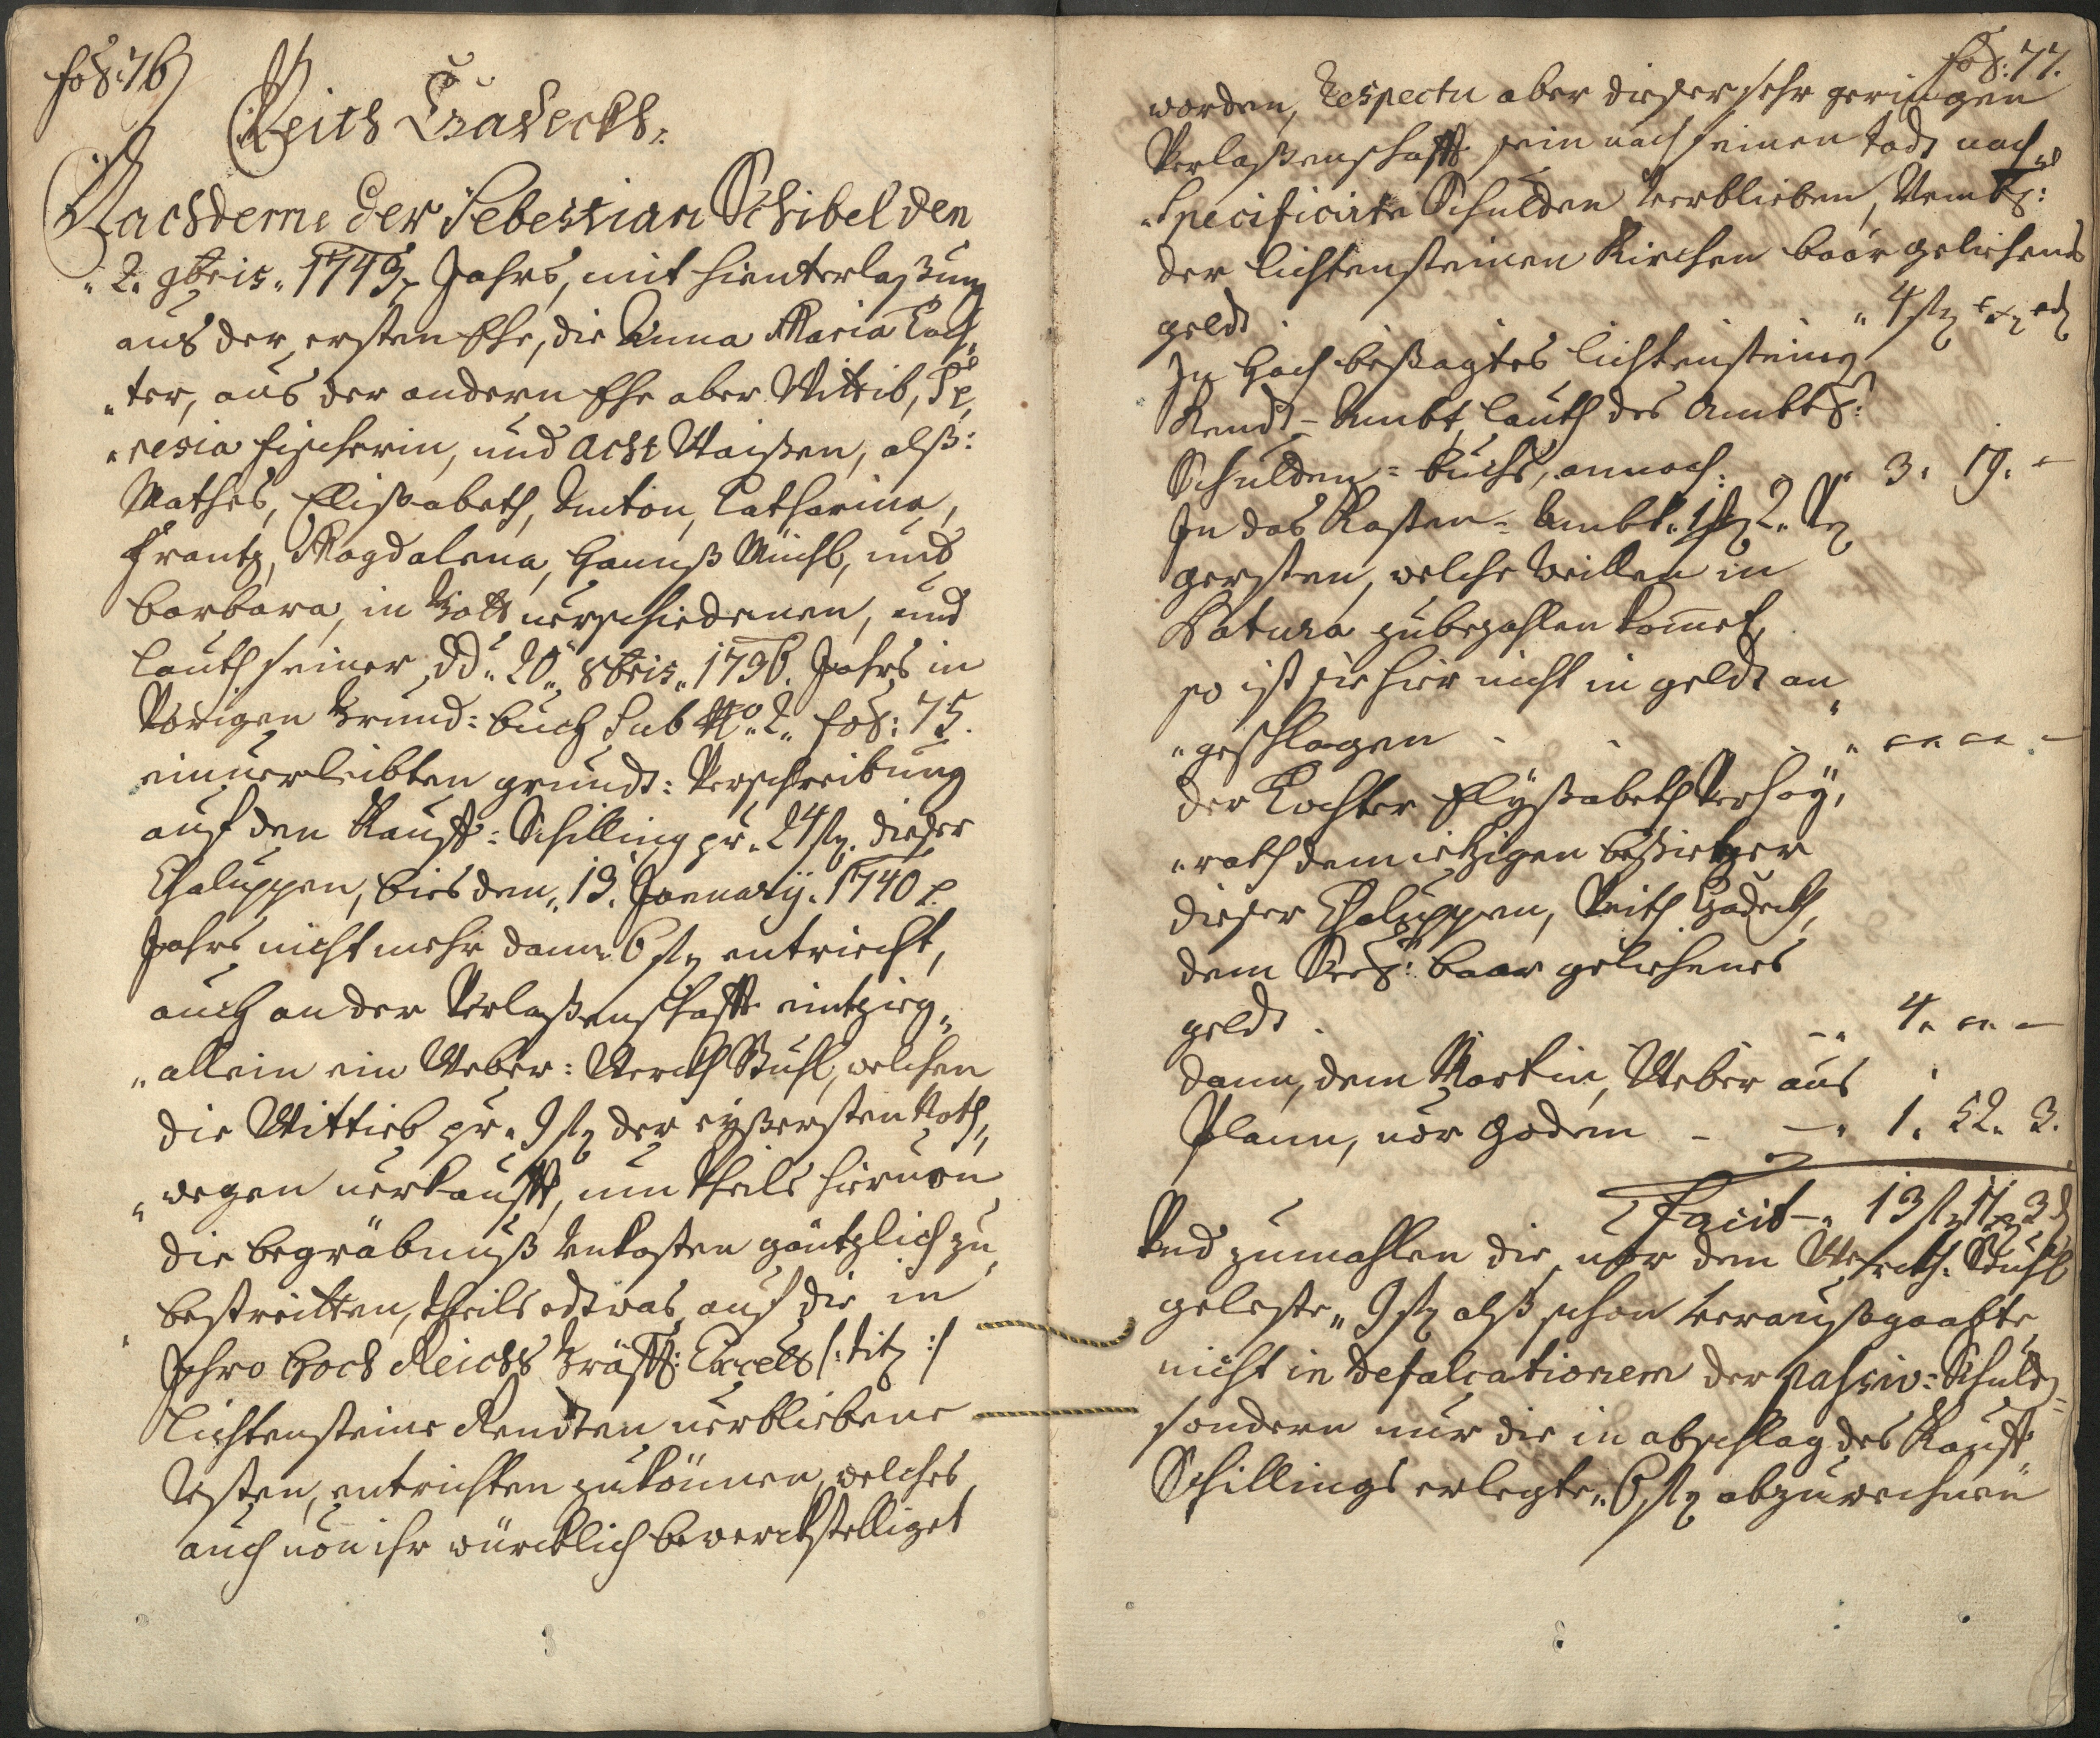 fol: 76
Veith Hadeckh.
Nachdeme der Sebestian Schibel den
"2. 9bris. 1749. Jahrs, mit hienterlaßung
aus der ersten Ehe, die Anna Maria Toch"
"ter, aus der andern Ehe aber Wittib, Te"
"resia Fischerin, und acht Waißen, alß:
Mathes, Elisabeth, Anton, Catharina,
Frantz, Magdalena, Hannß Michl, und
Barbara, in Gott verschiedenen, und
lauth seiner dd: 20" 8bris. 1736. Jahrs in
Vorigen Grund: buch Sub No: 2" fol: 75.
einverleibten grundt: Verschreibung
auf den Kauff: Schilling pr. 24 fl. dieser
Chaluppen, bies den" 19. Januarij. 1740
Jahrs nicht mehr dann 6 fl entricht,
auch an der Verlaßenschafft eintzig"
"allein ein Weber: Werckh Stuhl, welchen
die Wittieb pr. 9 fl der eyßersten Noth"
"wegen verkaufft, um theils hiervon
die begräbnuß Unkosten gäntzlich zu
bestreitten, theils edtwas auf die in
Ihro Hoch Reichs Gräffl: Excell /: tit :/
Lichtensteine Rendten verbliebene
Resten, entrichten zu können, welches
auch von ihr würcklich bewerckstelliget
fol: 77.
worden, Respectu aber dieser sehr geringen
Verlaßenschafft sein nach seinen todt nach"
"Specificirte Schulden Verblieben, Nembl:
der lichtensteinen Kirchen baar geliehenes
geldt . . . " 4 fl
In Hoch besagtes lichtensteine
Rendt-Ambt, lauth des Ambts:
Schulden=buchs, annoch: " 3. 19. -
In das Kasten=Ambt.
gersten, welche Weillen in
Natura zubezahlen kommet,
so ist sie hier nicht in geldt an"
"geschlagen - - - "
der Tochter Elyßabeth Verhey"
"rath dem ietzigen besietzer
dieser Chaluppen, Veith Hadeckh,
dem Seel: baar geliehenes
geldt . -" 4.
dann, dem Martin, Weber aus
Plann, vor Godem - -" 1. 52. 3.
Facit -" 13 fl 11 x 3 d
Und zumahlen die vor dem Werckh: Stuhl
geleste" 9 fl alß schon Veraußgaabte
nicht in defalcationem der Passiv: Schuld=
sondern nur die in abschlag des Kauff
Schillings erlegte" 6 fl abzurechnen